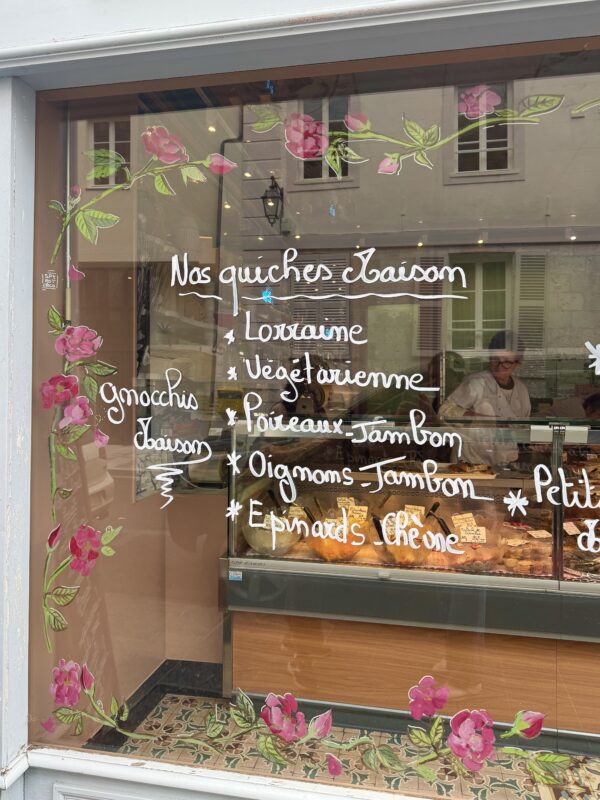 Nos quiches Maison
* Lorraine
* Végétarienne
* Poireaux-Jambon
* Oignons-Jambon
* Epinards-Chèvre
gnocchis
Maison
* Petits